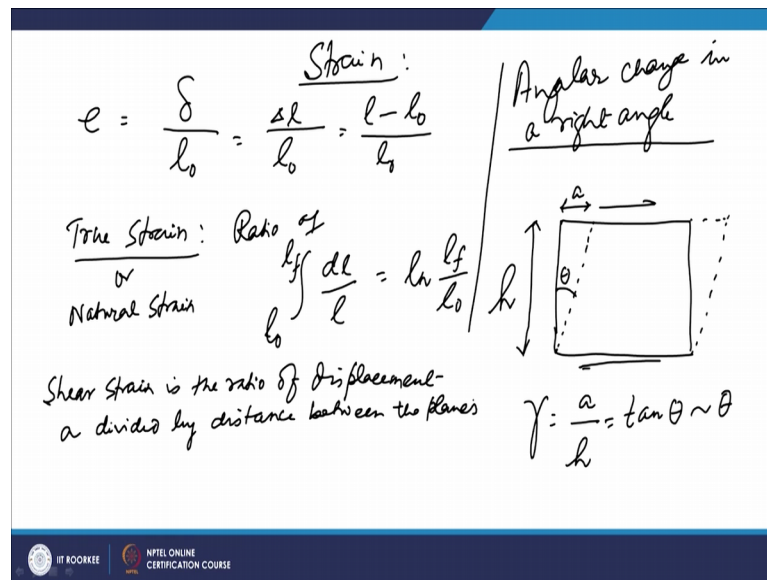 Strain :
e = δ/l₀ = Δl/l₀ = l - l₀/l₀
True Strain : Ratio of
or
Natural Strain
∫ l₀ lf dl/l = ln lf/l₀
Shear Strain is the ratio of displacement-
a divided by distance between the planes
Angular change in
a right angle
a
θ
h
γ = a/h = tan θ ~ θ
IIT ROORKEE
NPTEL ONLINE
CERTIFICATION COURSE